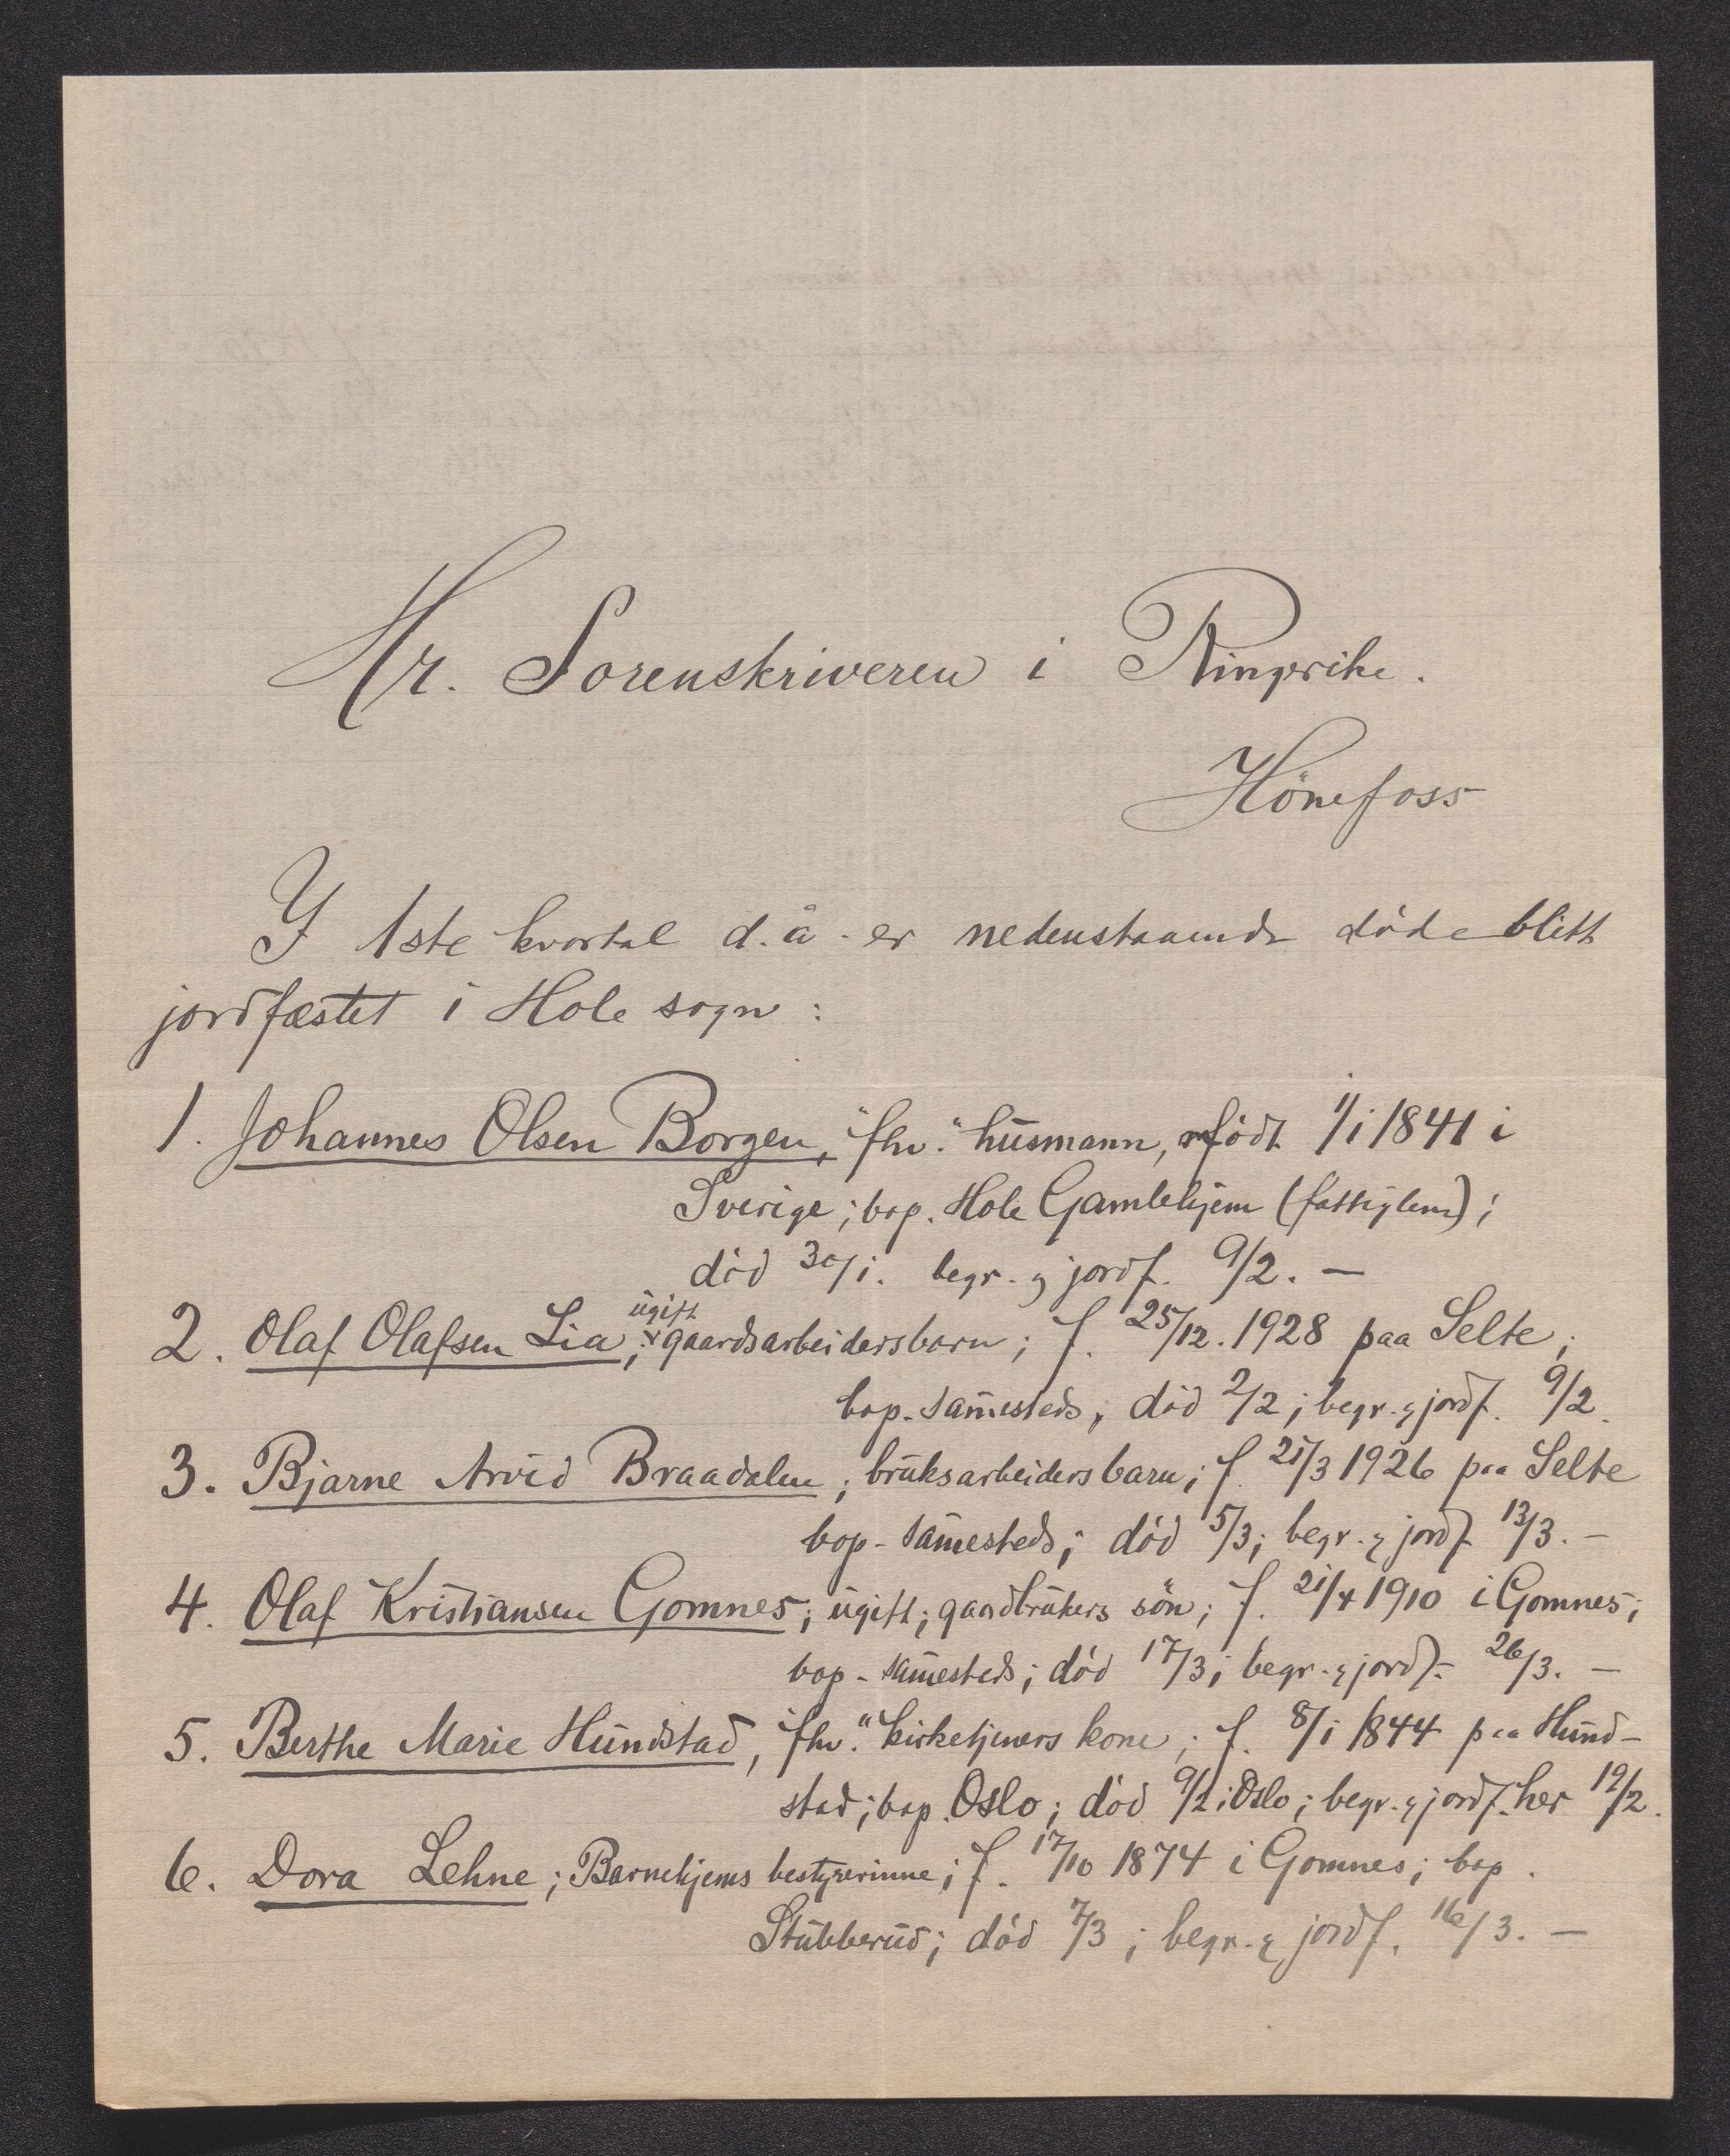 Hr. Sorenskriveren i Ringerike.
Hönefoss
I 1ste kvartal d.å. er nedenstaaende döde blitt
jordfæstet i Hole sogn:
1. Johannes Olsen Borgen, "fhv." husmann, födt 1/1 1841 i
Sverige; bop. Hole Gamlehjem (fattiglem);
död 30/1. begr. og jordf. 9/2. —
ugift
2. Olaf Olafsen Lia; gaardsarbeidersbarn; f. 25/12. 1928 paa Selte;
bop. sam̄esteds; död 2/2; begr. & jordf. 9/2.
3. Bjarne Arvid Braadalen; bruksarbeidersbarn; f. 21/3 1926 paa Selte
bop. sam̄esteds; död 5/3; begr. & jordf. 13/3. —
4. Olaf Kristiansen Gomnes; ugift; gaardbrukers sön; f. 21/4 1910 i Gomnes;
bop. sam̄esteds; död 17/3; begr. & jordf. 26/3. —
5. Berthe Marie Hundstad, "fhv." kirketjeners kone; f. 8/1 1844 paa Hund-
stad; bop. Oslo; död 9/2 i Oslo; begr. & jordf. her 19/2.
6. Dora Lehne; Barnehjems bestyrerinne; f. 17/10 1874 i Gomnes; bop.
Stubberud; död 7/3; begr. & jordf. 16/3. —